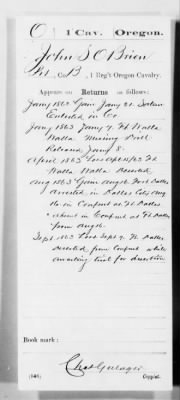 O | 1 Cav. | Oregon.
John S O'Brien
Pvt, Co. B, 1 Reg't Oregon Cavalry.
Appears on
Returns as follows:
Jany 1862 Gain Jany 21. Salem
Enlisted in Co
Jany 1863 Jany 7. Ft Walla
Walla Missing Pvt
Retained Jany 8.
April 1863 Loss Apl 1863 Ft
Walla Walla Deserted
Aug 1863 Gain Aug Fort Dalles
arrested in Dalles City Aug
in Confmt at Ft Dalles
absent in Confmt Ft Dalles
from Aug
Sept 1863 Loss Sept 9. Ft Dalles
Deserted from Confmt while
awaiting trial for desertion
Book mark:
(546)
Copyist.